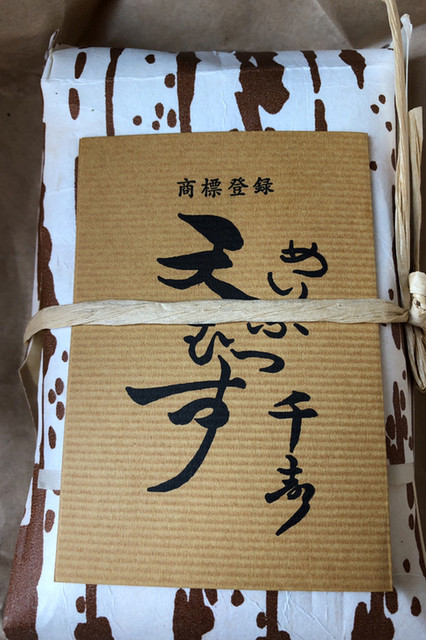 商標登録
めいぶつ千寿
天むす